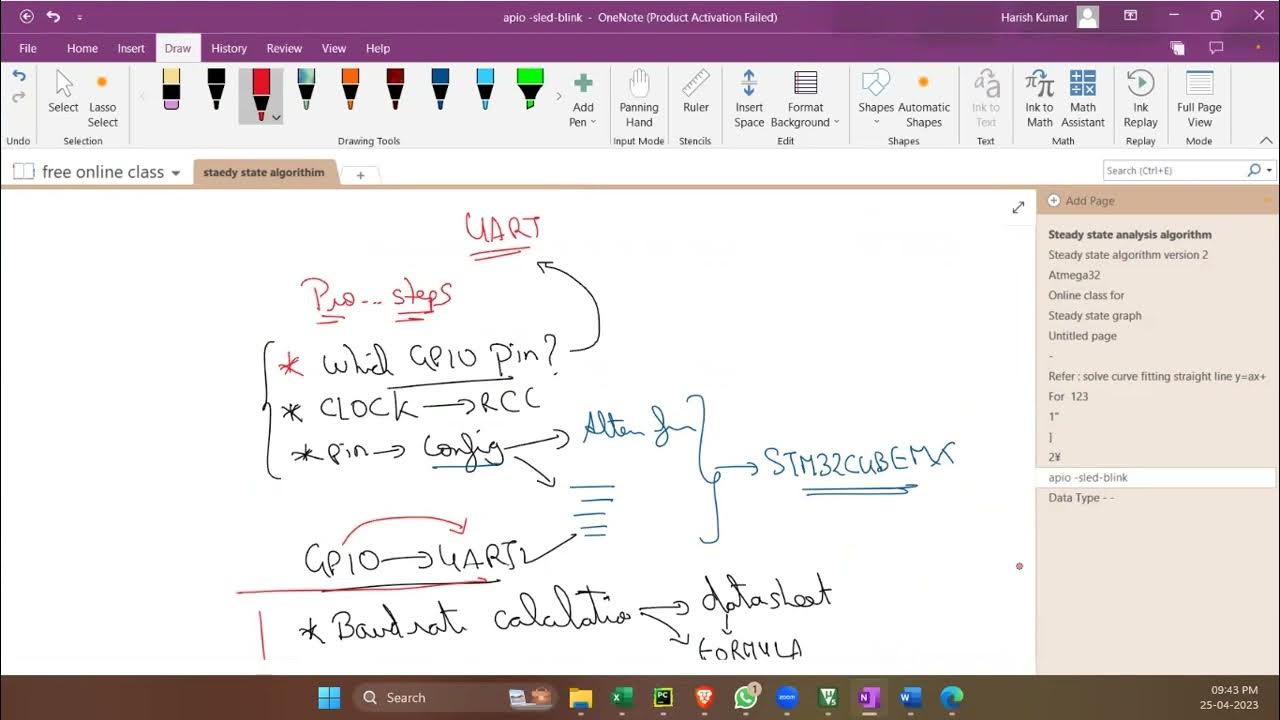 apio -sled-blink - OneNote (Product Activation Failed)
Harish Kumar
File Home Insert Draw History Review View Help
Undo
Select
Lasso Select
Selection
Drawing Tools
Add Pen
Panning Hand
Input Mode
Ruler
Stencils
Insert Space
Format Background
Edit
Shapes
Automatic Shapes
Shapes
Ink to Text
Text
Ink to Math
Math Assistant
Math
Ink Replay
Replay
Full Page View
Mode
free online class
staedy state algorithim
+
Search (Ctrl+E)
UART
Pro... steps
* Which GPIO pin?
* CLOCK → RCC
* pin → Config → Altern fun
→ STM32CUBEMX
GPIO → UART2
* Baudrate calculation → datasheet
FORMULA
Add Page
Steady state analysis algorithm
Steady state algorithm version 2
Atmega32
Online class for
Steady state graph
Untitled page
-
Refer : solve curve fitting straight line y=ax+
For 123
1"
]
2¥
apio -sled-blink
Data Type - -
Search
1
zoom
09:43 PM
25-04-2023